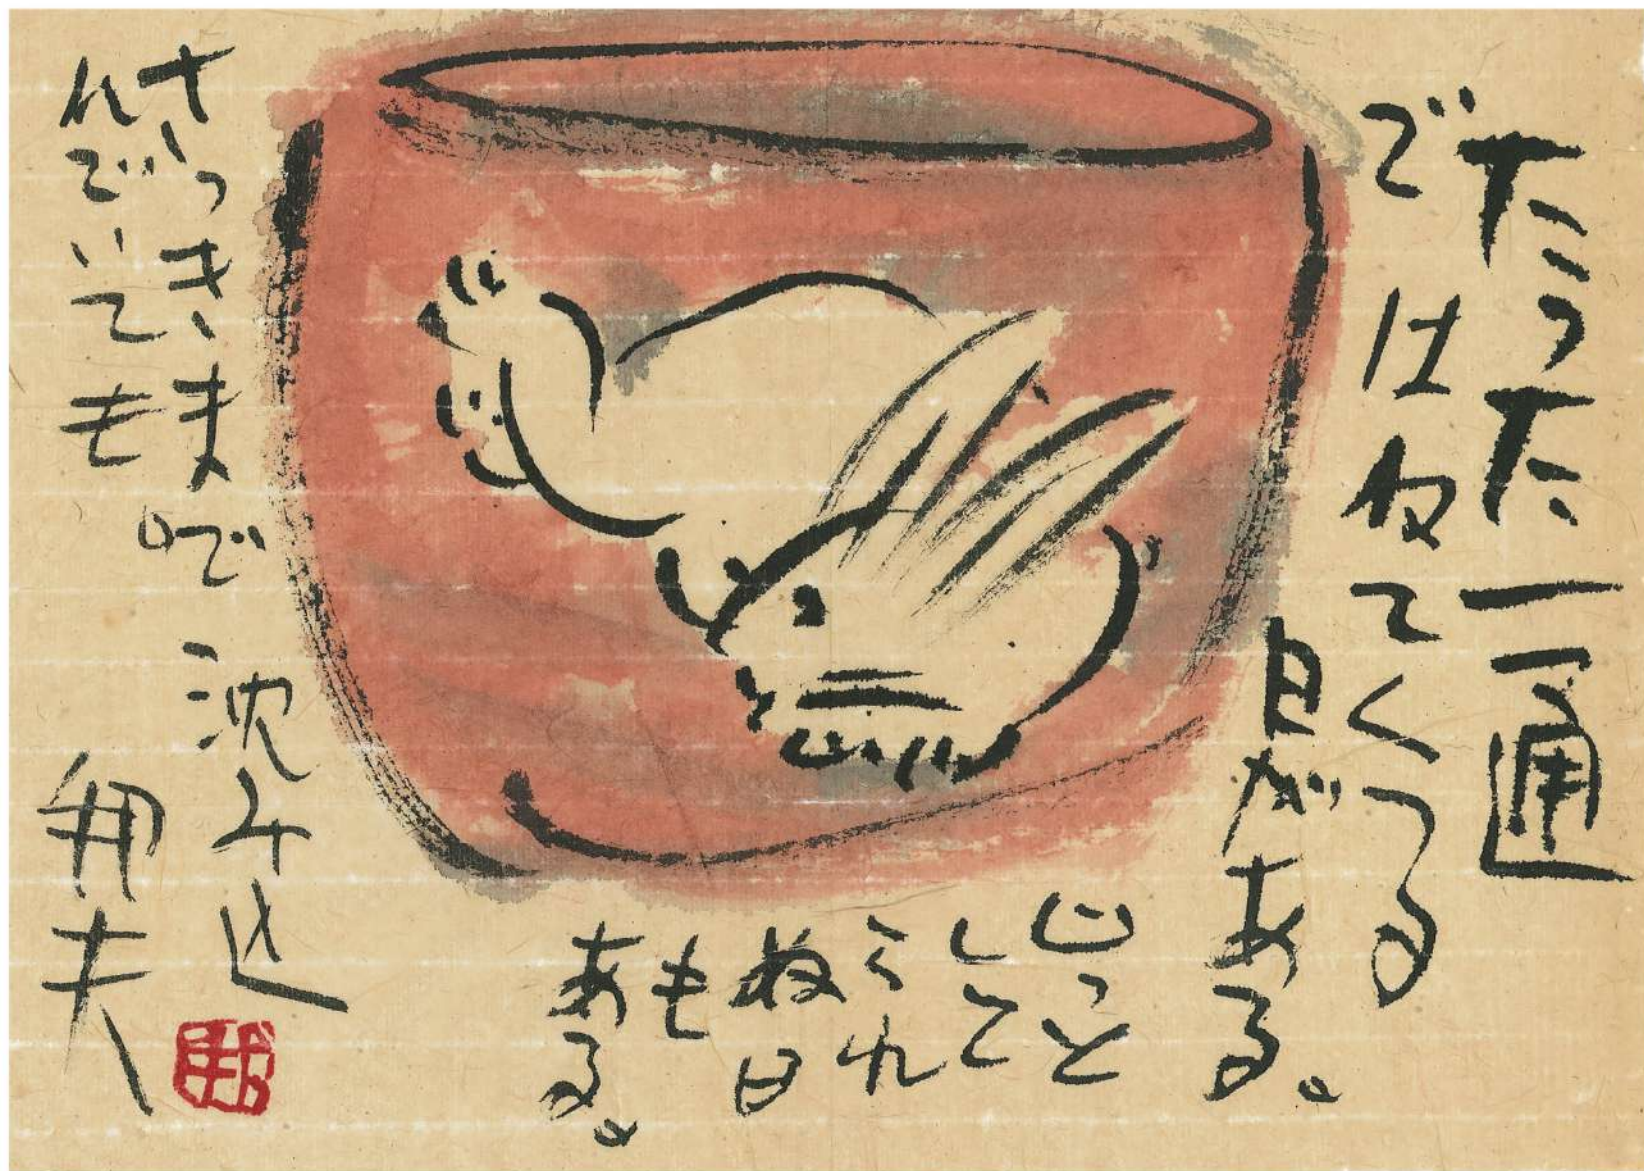 たった一通
で はねてくつる
日がある。
じっと
して
られ
ぬ日
も
ある。
さっきまで 沈み込
んでいても